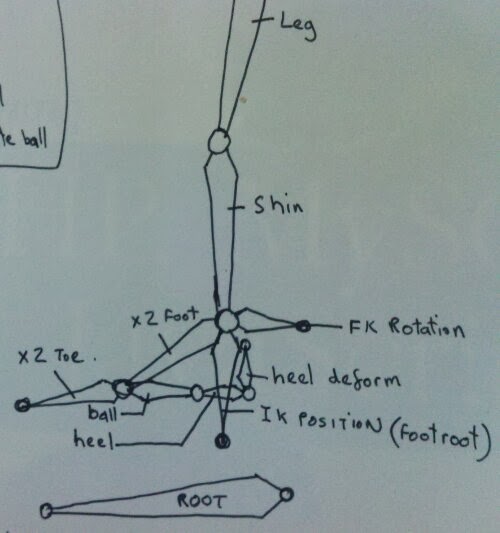 Leg
te ball
Shin
x2 Foot
FK Rotation
x2 Toe.
heel deform
ball
IK POSITION (Footroot)
heel
ROOT